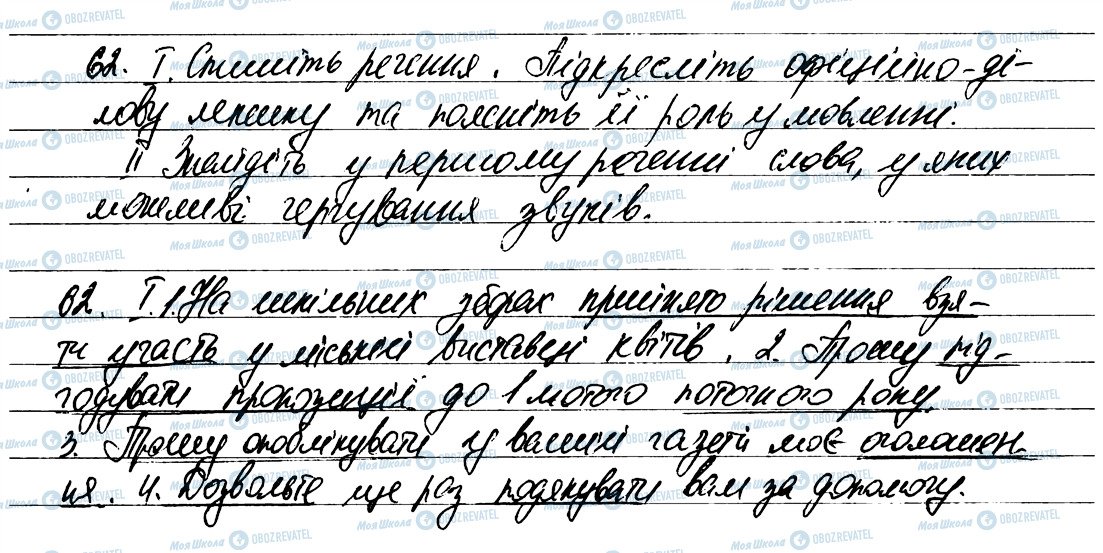 62. І. Спишіть речення. Підкресліть офіційно-ді-
лову лексику та поясніть її роль у мовленні.
ІІ Знайдіть у першому реченні слова, у яких
можливі чергування звуків.
62. І.1. На шкільних зборах прийнято рішення взя-
ти участь у міській виставці квітів. 2. Прошу під-
годувати пропозиції до 1 лютого поточного року.
3. Прошу опублікувати у вашій газеті моє оголошен-
ня. 4. Дозвольте ще раз подякувати вам за допомогу.